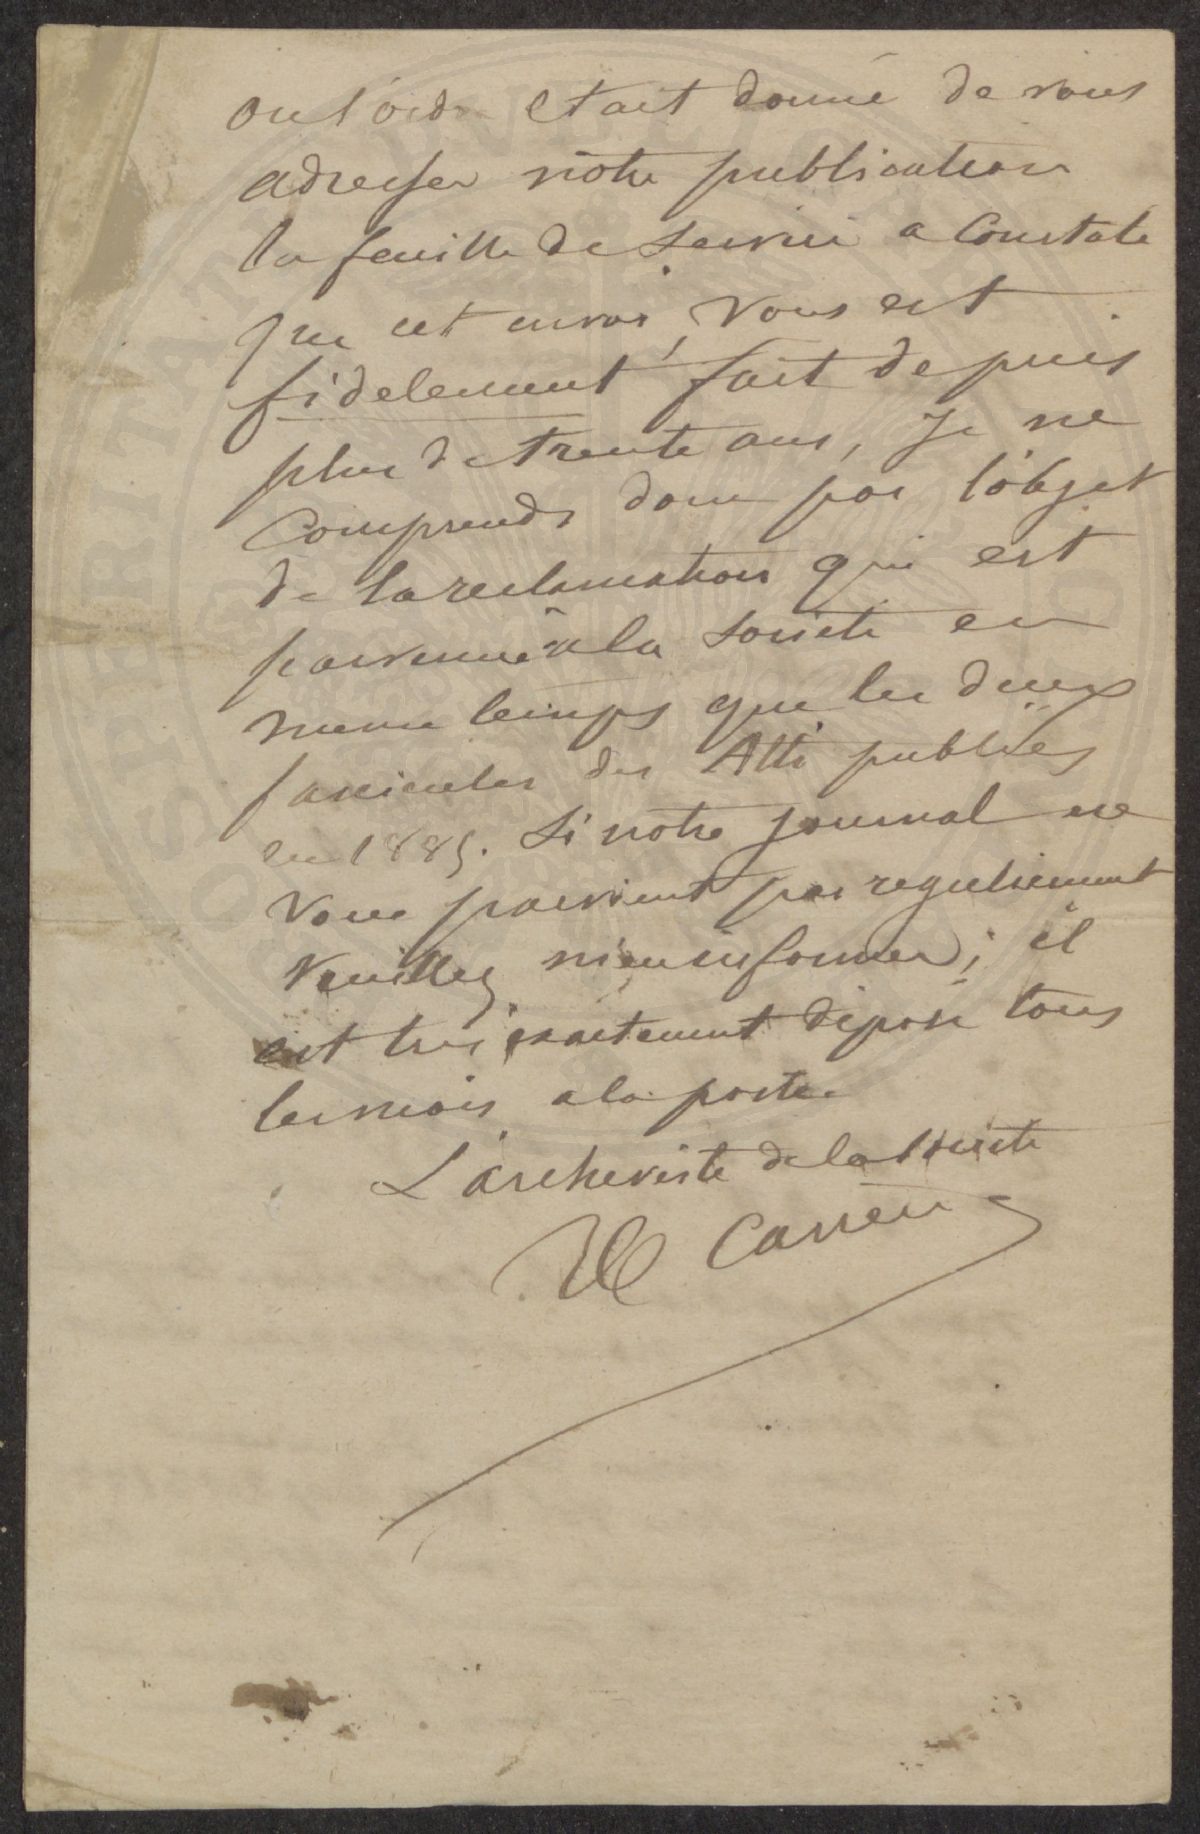 ou l'ordre etait donné de vous
adresser notre publication
la feuille de service a constaté
que cet envoi vous est
fidelement fait depuis
plus de trente ans, Je ne
Comprends donc pas l'objet
de la reclamation qui est
parvenue a la societe en
meme temps que les deux
fascicules des Atti publiés
en 1885. Si notre journal ne
vous parvient pas regulierement
veuillez m'en informer; il
est tres exactement déposé tous
les mois a la poste.
L'archiviste de la societe